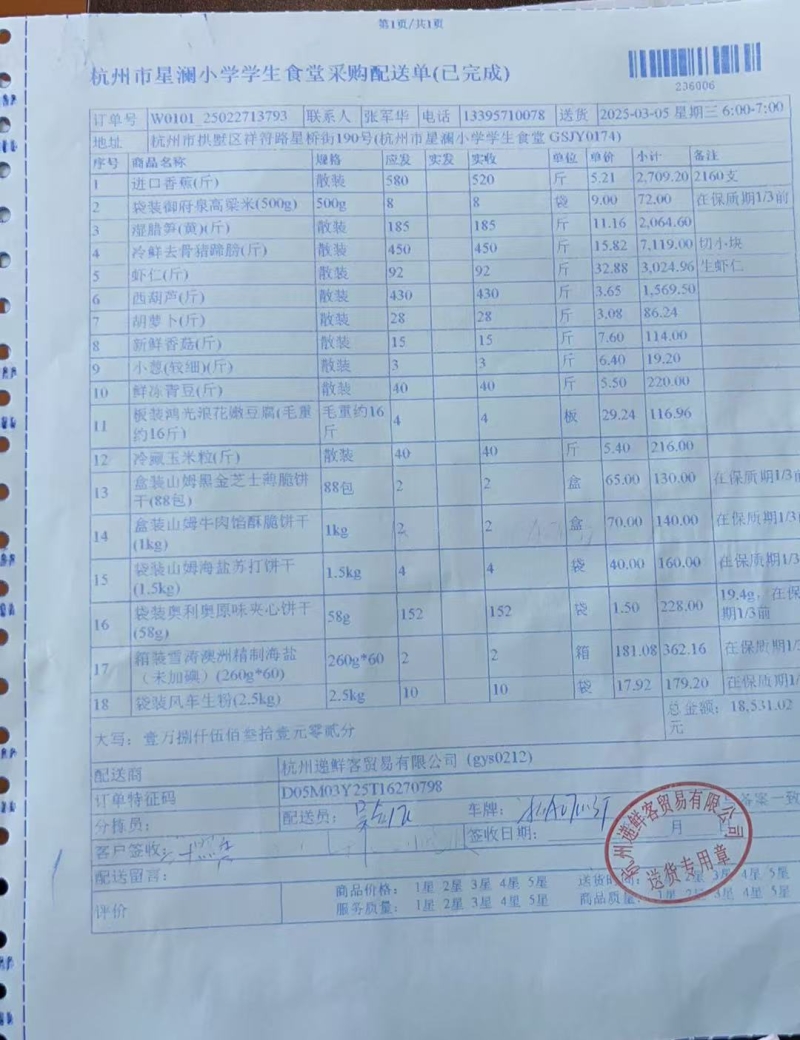 第1页/共1页
杭州市星澜小学学生食堂采购配送单(已完成)
236006
订单号 W0101_25022713793 联系人 张军华 电话 13395710078 送货 2025-03-05 星期三 6:00-7:00
地址 杭州市拱墅区祥符路星桥街190号(杭州市星澜小学学生食堂 GSJY0174)
序号 商品名称 规格 应发 实发 实收 单位 单价 小计 备注
1 进口香蕉(斤) 散装 580 520 斤 5.21 2,709.20 2160支
2 袋装御府泉高粱米(500g) 500g 8 8 袋 9.00 72.00 在保质期1/3前
3 湿腊笋(黄)(斤) 散装 185 185 斤 11.16 2,064.60
4 冷鲜去骨猪蹄膀(斤) 散装 450 450 斤 15.82 7,119.00 切小块
5 虾仁(斤) 散装 92 92 斤 32.88 3,024.96 生虾仁
6 西葫芦(斤) 散装 430 430 斤 3.65 1,569.50
7 胡萝卜(斤) 散装 28 28 斤 3.08 86.24
8 新鲜香菇(斤) 散装 15 15 斤 7.60 114.00
9 小葱(较细)(斤) 散装 3 3 斤 6.40 19.20
10 鲜冻青豆(斤) 散装 40 40 斤 5.50 220.00
11 板装鸿光浪花嫩豆腐(毛重约16斤) 毛重约16斤 4 4 板 29.24 116.96
12 冷藏玉米粒(斤) 散装 40 40 斤 5.40 216.00
13 盒装山姆黑金芝士薄脆饼干(88包) 88包 2 2 盒 65.00 130.00 在保质期1/3前
14 盒装山姆牛肉馅酥脆饼干(1kg) 1kg 2 2 盒 70.00 140.00 在保质期1/3前
15 袋装山姆海盐苏打饼干(1.5kg) 1.5kg 4 4 袋 40.00 160.00 在保质期1/3前
16 袋装奥利奥原味夹心饼干(58g) 58g 152 152 袋 1.50 228.00 19.4g，在保期1/3前
17 箱装雪涛澳洲精制海盐（未加碘）(260g*60) 260g*60 2 2 箱 181.08 362.16 在保质期1/
18 袋装风车生粉(2.5kg) 2.5kg 10 10 袋 17.92 179.20 在保质期1/
大写：壹万捌仟伍佰叁拾壹元零贰分 总金额：18,531.02元
配送商 杭州递鲜客贸易有限公司 (gys0212)
订单特征码 D05M03Y25T16270798
分拣员： 配送员： 车牌： 备案一致
客户签收： 签收日期： 月
配送留言：
评价 商品价格： 1星 2星 3星 4星 5星 送货时间： 2星 3星 4星 5星
服务质量： 1星 2星 3星 4星 5星 商品质量： 1星 2星 3星 4星 5星
杭州递鲜客贸易有限公司
送货专用章